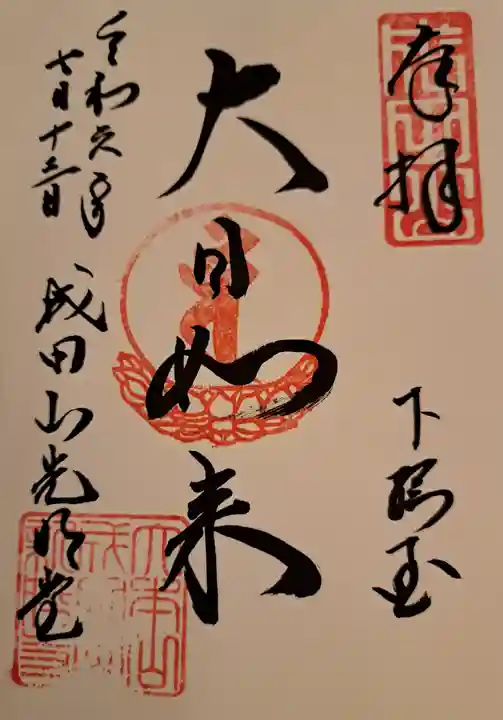 奉拝
下総国
大日如来
令和六年
七月十三日
成田山光明堂